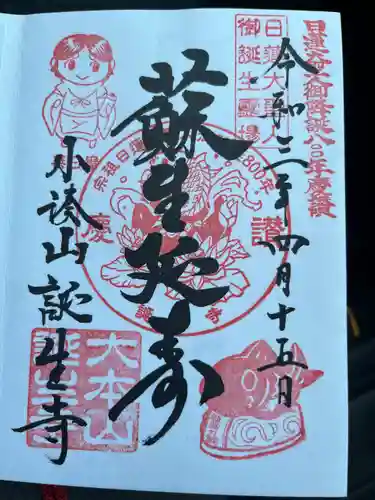 日蓮大聖人御降誕八〇〇年慶讃
令和三年四月十五日
日蓮大聖人
御誕生霊場
蘇生延寿
慶讃
800年
誕生寺
小湊山誕生寺
大本山
誕生寺